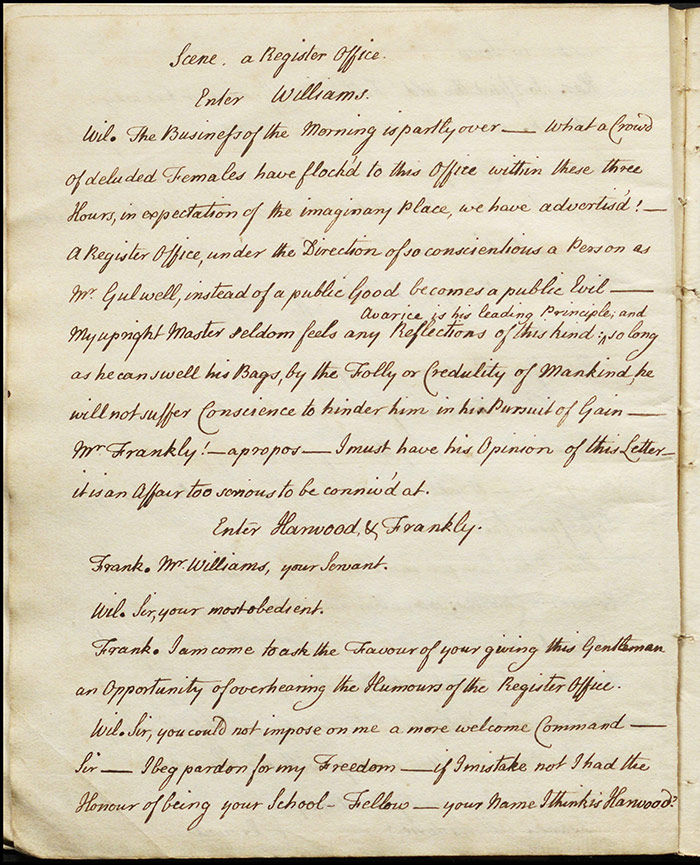 Scene. a Register Office.
Enter Williams.
Wil. The Business of the Morning is partly over — what a Crowd
of deluded Females have flock'd to this Office within these three
Hours, in expectation of the imaginary Place, we have advertis'd! —
A Register Office, under the Direction of so conscientious a Person as
Mr. Gulwell, instead of a public Good becomes a public Evil —
Avarice is his leading Principle; and
My upright Master seldom feels any Reflections of this kind: so long
as he can swell his Bags, by the Folly or Credulity of Mankind, he
will not suffer Conscience to hinder him in his Pursuit of Gain —
Mr. Frankly! — apropos — I must have his Opinion of this Letter —
it is an Affair too serious to be conniv'd at.
Enter Harwood, & Frankly.
Frank. Mr. Williams, your Servant.
Wil. Sir, your most obedient.
Frank. I am come to ask the Favour of your giving this Gentleman
an Opportunity of overhearing the Humours of the Register Office.
Wil. Sir, you could not impose on me a more welcome Command —
Sir — I beg pardon for my Freedom — if I mistake not I had the
Honour of being your School-Fellow — your Name I think is Harwood?